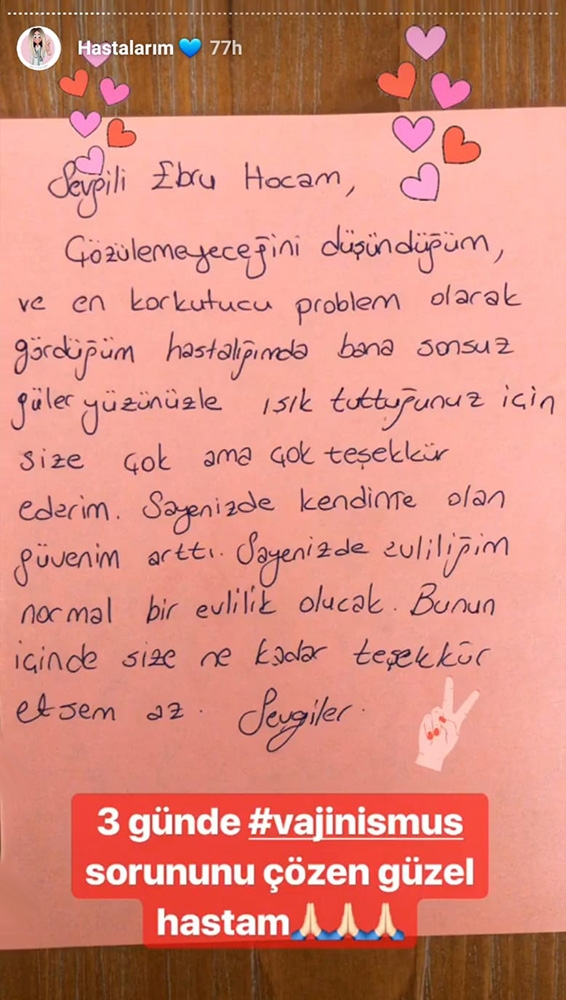 Hastalarım 💙 77h
Sevgili Ebru Hocam,
Çözülemeyeceğini düşündüğüm,
ve en korkutucu problem olarak
gördüğüm hastalığımda bana sonsuz
güler yüzünüzle ışık tuttuğunuz için
size çok ama çok teşekkür
ederim. Sayenizde kendime olan
güvenim arttı. Sayenizde evliliğim
normal bir evlilik olucak. Bunun
içinde size ne kadar teşekkür
etsem az. Sevgiler.
3 günde #vajinismus
sorununu çözen güzel
hastam🙏🏻🙏🏻🙏🏻